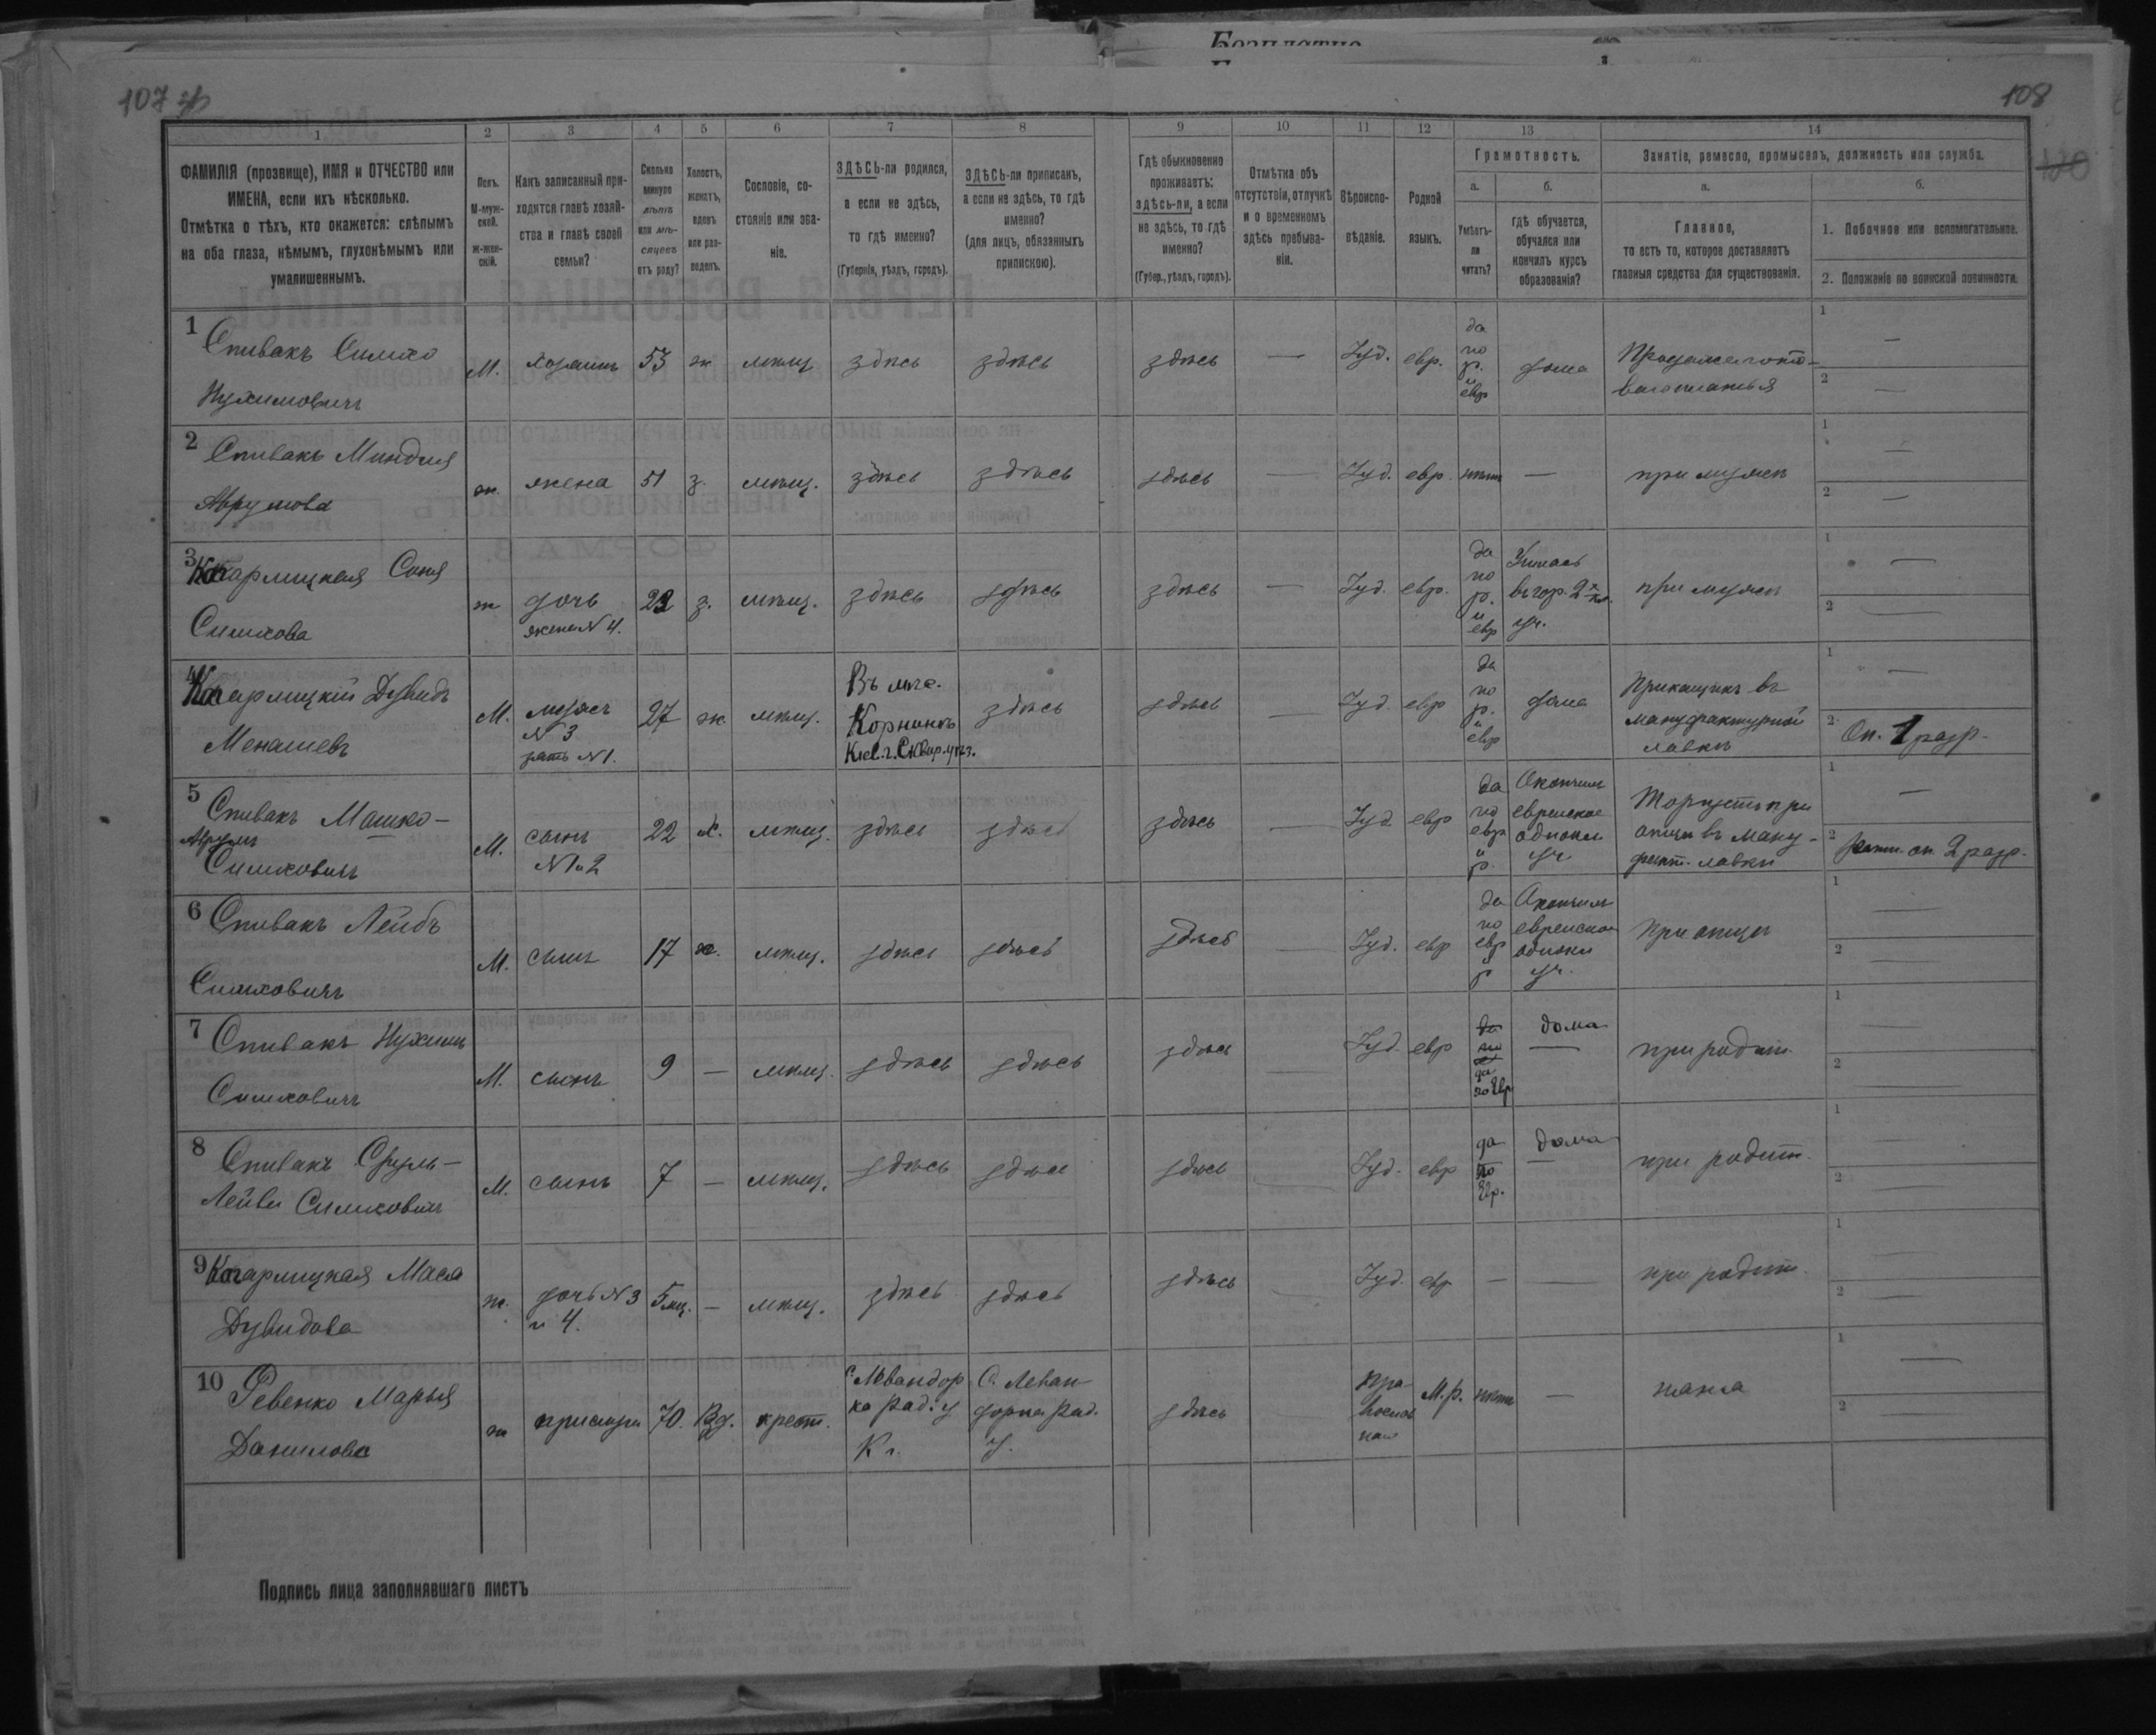 Безплатно
107 об
108
130
1 2 3 4 5 6 7 8 9 10 11 12 13 14
ФАМИЛІЯ (прозвище), ИМЯ и ОТЧЕСТВО или
ИМЕНА, если ихъ нѣсколько.
Отмѣтка о тѣхъ, кто окажется: слѣпымъ
на оба глаза, нѣмымъ, глухонѣмымъ или
умалишеннымъ.
Полъ.
М-муж-
ской.
ж-жен-
скій.
Какъ записанный при-
ходится главѣ хозяй-
ства и главѣ своей
семьи?
Сколько
минуло
лѣтъ
или мѣ-
сяцевъ
отъ роду?
Холостъ,
женатъ,
вдовъ
или раз-
веденъ.
Сословіе, со-
стояніе или зва-
ніе.
ЗДѢСЬ-ли родился,
а если не здѣсь,
то гдѣ именно?
(Губернія, уѣздъ, городъ).
ЗДѢСЬ-ли приписанъ,
а если не здѣсь, то гдѣ
именно?
(для лицъ, обязанныхъ
припискою).
Гдѣ обыкновенно
проживаетъ:
здѣсь-ли, а если
не здѣсь, то гдѣ
именно?
(Губер., уѣздъ, городъ).
Отмѣтка объ
отсутствіи, отлучкѣ
и о временномъ
здѣсь пребыва-
ніи.
Вѣроиспо-
вѣданіе.
Родной
языкъ.
Грамотность.
а.
Умѣетъ-
ли
читать?
б.
гдѣ обучается,
обучался или
кончилъ курсъ
образованія?
Занятіе, ремесло, промыселъ, должность или служба.
а.
Главное,
то есть то, которое доставляетъ
главныя средства для существованія.
б.
1. Побочное или вспомогательное.
2. Положеніе по воинской повинности.
1 Спивакъ Симхо
Нухимовичъ
М. хозяинъ 53 ж мѣщ здѣсь здѣсь здѣсь — Iуд. евр.
да
по
р.
и
евр
дома
Продажа гото-
ваго платья
1 —
2 —
2 Спивакъ Миндля
Аврумова
ж. жена 51 з. мѣщ. здѣсь здѣсь здѣсь — Iуд. евр. нѣтъ — при мужѣ
1 —
2 —
3 Кагарлицкая Соня
Симхова
ж дочь
жена N 4.
22 з. мѣщ. здѣсь здѣсь здѣсь — Iуд. евр.
да
по
р.
и
евр
Училась
въ гор. 2х кл.
уч.
при мужѣ
1 —
2 —
4 Кагарлицкій Дувидъ
Менашевъ
М. мужъ
N 3
зять N 1.
27 ж мѣщ.
Въ мѣс.
Корнинѣ
Кіев. г. Сквир. уѣз.
здѣсь здѣсь — Iуд. евр
да
по
р.
и
евр
дома
Приказчикъ въ
мануфактурной
лавкѣ
1 —
2 Оп. 1 разр.
5 Спивакъ Мошко-
Аврумъ
Симховичъ
М. сынъ
N 1 и 2
22 х. мѣщ. здѣсь здѣсь здѣсь — Iуд евр
да
по
евр
и
р.
Окончилъ
еврейское
однокл
уч
Торгуетъ при
отцѣ въ ману-
факт. лавкѣ
1 —
2 Ратн. оп. 2 разр.
6 Спивакъ Лейбъ
Симховичъ
М. сынъ 17 х. мѣщ. здѣсь здѣсь здѣсь — Iуд. евр
да
по
евр
и
р
Окончилъ
еврейское
однокл
уч.
При отцѣ
1 —
2 —
7 Спивакъ Нухимъ
Симховичъ
М. сынъ 9 — мѣщ. здѣсь здѣсь здѣсь Iуд евр
да
по
да
по Евр
дома
—
при родит.
1 —
2 —
8 Спивакъ Сруль-
Лейви Симховичъ
М. сынъ 7 — мѣщ. здѣсь здѣсь здѣсь — Iуд. евр
да
по
Евр.
дома
—
при родит.
1 —
2 —
9 Кагарлицкая Мася
Дувидова
ж. дочь N 3
и 4.
5 мц. — мѣщ. здѣсь здѣсь здѣсь — Iуд. евр — — при родит.
1 —
2 —
10 Ревенко Марья
Данилова
ж прислуга 70. Вд. крест.
с. Левандор
ка Рад. у
К г.
С. Леван-
дорка Рад.
у.
здѣсь
Пра-
вослав
ная
М. р. нѣтъ — няня
1 —
2 —
Подпись лица заполнявшаго листъ